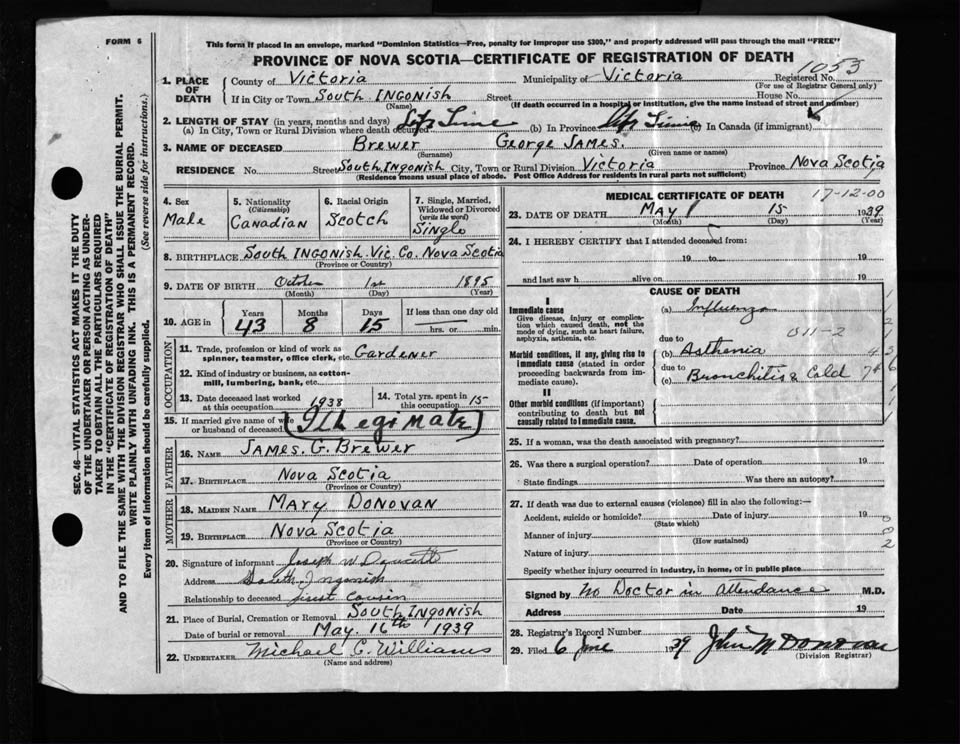 FORM 6
This form if placed in an envelope, marked "Dominion Statistics—Free, penalty for improper use $300," and properly addressed will pass through the mail "FREE"
PROVINCE OF NOVA SCOTIA—CERTIFICATE OF REGISTRATION OF DEATH
1053
1. PLACE OF DEATH County of Victoria Municipality of Victoria Registered No.
(For use of Registrar General only)
If in City or Town South INGONISH Street House No.
(Name) (If death occurred in a hospital or institution, give the name instead of street and number)
2. LENGTH OF STAY (in years, months and days)
(a) In City, Town or Rural Division where death occurred Life Time (b) In Province Life Time (c) In Canada (if immigrant)
3. NAME OF DECEASED Brewer George JAMES.
(Surname) (Given name or names)
RESIDENCE No. Street South INGONISH City, Town or Rural Division Victoria Province Nova Scotia
(Residence means usual place of abode. Post Office Address for residents in rural parts not sufficient)
4. Sex Male
5. Nationality (Citizenship) Canadian
6. Racial Origin Scotch
7. Single, Married, Widowed or Divorced (write the word) Single
8. BIRTHPLACE South INGONISH. Vic. Co. Nova Scotia
(Province or Country)
9. DATE OF BIRTH October 1st 1895
(Month) (Day) (Year)
10. AGE in Years Months Days If less than one day old
43 8 15 hrs. or min.
OCCUPATION
11. Trade, profession or kind of work as spinner, teamster, office clerk, etc. Gardener
12. Kind of industry or business, as cotton-mill, lumbering, bank, etc.
13. Date deceased last worked at this occupation 1938
14. Total yrs. spent in this occupation 15
15. If married give name of wife or husband of deceased (Illegimate)
FATHER
16. NAME JAMES. G. Brewer
17. BIRTHPLACE Nova Scotia
(Province or Country)
MOTHER
18. MAIDEN NAME MARY DONOVAN
19. BIRTHPLACE Nova Scotia
(Province or Country)
20. Signature of informant Joseph W Doucett
Address South Ingonish
Relationship to deceased first cousin
21. Place of Burial, Cremation or Removal South INGONISH
Date of burial or removal May. 16th 1939
22. UNDERTAKER Michael C. Williams
(Name and address)
MEDICAL CERTIFICATE OF DEATH
17-12-00
23. DATE OF DEATH MAY 15 1939
(Month) (Day) (Year)
24. I HEREBY CERTIFY that I attended deceased from:
19 to 19
and last saw h alive on 19
CAUSE OF DEATH
I
Immediate cause
Give disease, injury or complication which caused death, not the mode of dying, such as heart failure, asphyxia, asthenia, etc.
(a) Influenza
011-2
due to
Morbid conditions, if any, giving rise to immediate cause (stated in order proceeding backwards from immediate cause).
(b) Asthenia
due to
(c) Bronchitis & Cold
II
Other morbid conditions (if important) contributing to death but not causally related to immediate cause.
25. If a woman, was the death associated with pregnancy?
26. Was there a surgical operation? Date of operation 19
State findings Was there an autopsy?
27. If death was due to external causes (violence) fill in also the following:—
Accident, suicide or homicide? Date of injury 19
(State which)
Manner of injury
(How sustained)
Nature of injury
Specify whether injury occurred in industry, in home, or in public place
Signed by No Doctor in Attendance M.D.
Address Date 19
28. Registrar's Record Number
29. Filed 6 June 1939 John M Donovan
(Division Registrar)
SEC. 46—VITAL STATISTICS ACT MAKES IT THE DUTY
OF THE UNDERTAKER OR PERSON ACTING AS UNDER-
TAKER TO OBTAIN ALL THE PARTICULARS REQUIRED
IN THE "CERTIFICATE OF REGISTRATION OF DEATH"
AND TO FILE THE SAME WITH THE DIVISION REGISTRAR WHO SHALL ISSUE THE BURIAL PERMIT.
WRITE PLAINLY WITH UNFADING INK. THIS IS A PERMANENT RECORD.
Every item of information should be carefully supplied. (See reverse side for instructions.)